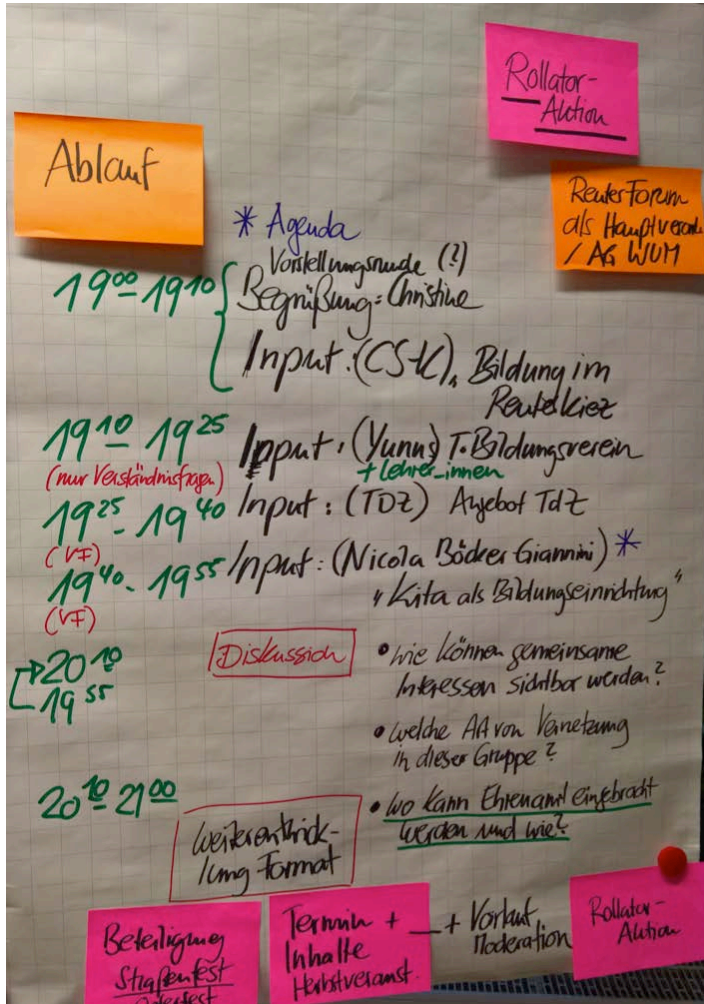 Rollator-
Aktion
Ablauf
ReuterForum
als Hauptverant
/ AG WUM
* Agenda
Vorstellungsrunde (?)
19⁰⁰ - 19¹⁰ Begrüßung: Christine
Input: (CSK), Bildung im
Reuterkiez
19¹⁰ - 19²⁵ Input: (Yunus) T. Bildungsverein
(nur Verständnisfragen) + Lehrer_innen
19²⁵ - 19⁴⁰ Input: (TDZ) Angebot TdZ
(VF)
19⁴⁰ - 19⁵⁵ Input: (Nicola Böcker-Giannini) *
(VF) "Kita als Bildungseinrichtung"
20¹⁰ Diskussion • wie können gemeinsame
19⁵⁵ Interessen sichtbar werden?
• welche AA von Vernetzung
in dieser Gruppe?
20¹⁰ - 21⁰⁰ • wo kann Ehrenamt eingebracht
werden und wie?
Weiterentwick-
lung Format
Beteiligung
Straßenfest
Termin +
Inhalte
Herbstveranst.
__ + Vorlauf
Moderation
Rollator-
Aktion